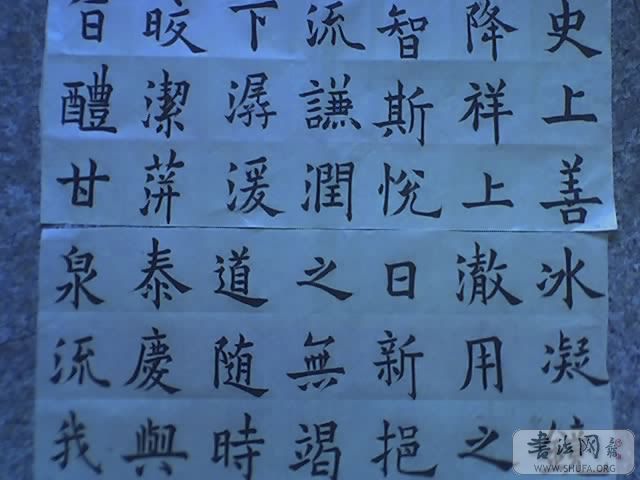 史上善
降祥上
智斯悅
流謙潤
下潺湲
皎潔萍
旨醴甘
冰凝
澈用之
日新挹
之無竭
道随時
泰慶與
泉流我
书法网
WWW.SHUFA.ORG